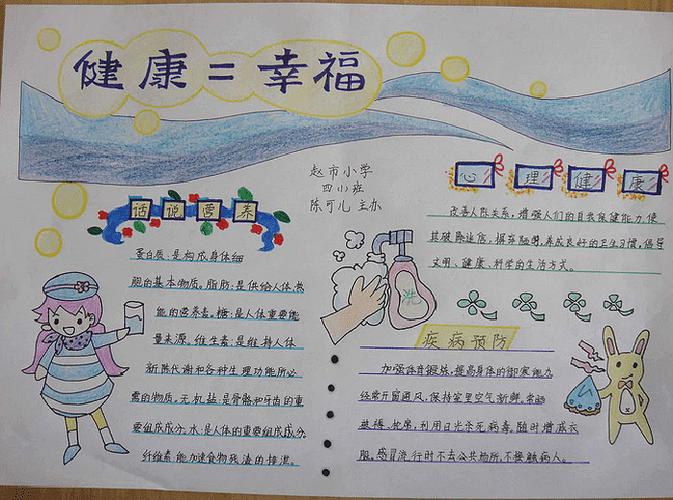 健康=幸福
赵市小学
四(1)班
陈可儿 主办
话说营养
蛋白质:是构成身体细
胞的基本物质。脂肪:是供给人体热
能的营养素。糖:是人体重要能
量来源。维生素:是维持人体
新陈代谢和各种生理功能所必
需的物质。无机盐:是骨骼和牙齿的重
要组成成分。水:是人体的重要组成成分。
纤维素:能加速食物残渣的排泄。
心理健康
改善人际关系,增强人们的自我保健能力,使
其破除迷信,摒弃陋习,养成良好的卫生习惯,倡导
文明、健康、科学的生活方式。
洗
疾病预防
加强体育锻炼,提高身体的御寒能力。
经常开窗通风,保持室里空气新鲜。常晒
被褥、枕席,利用日光杀死病毒,随时增减衣
服。感冒流行时不去公共场所,不接触病人。